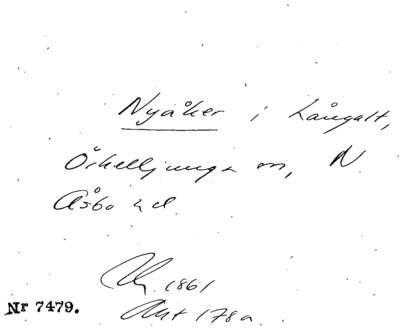 Nyåker i Långalt,
Örkelljunga sn, N.
Åsbo hd.
1861
Akt 178a
Nr 7479.